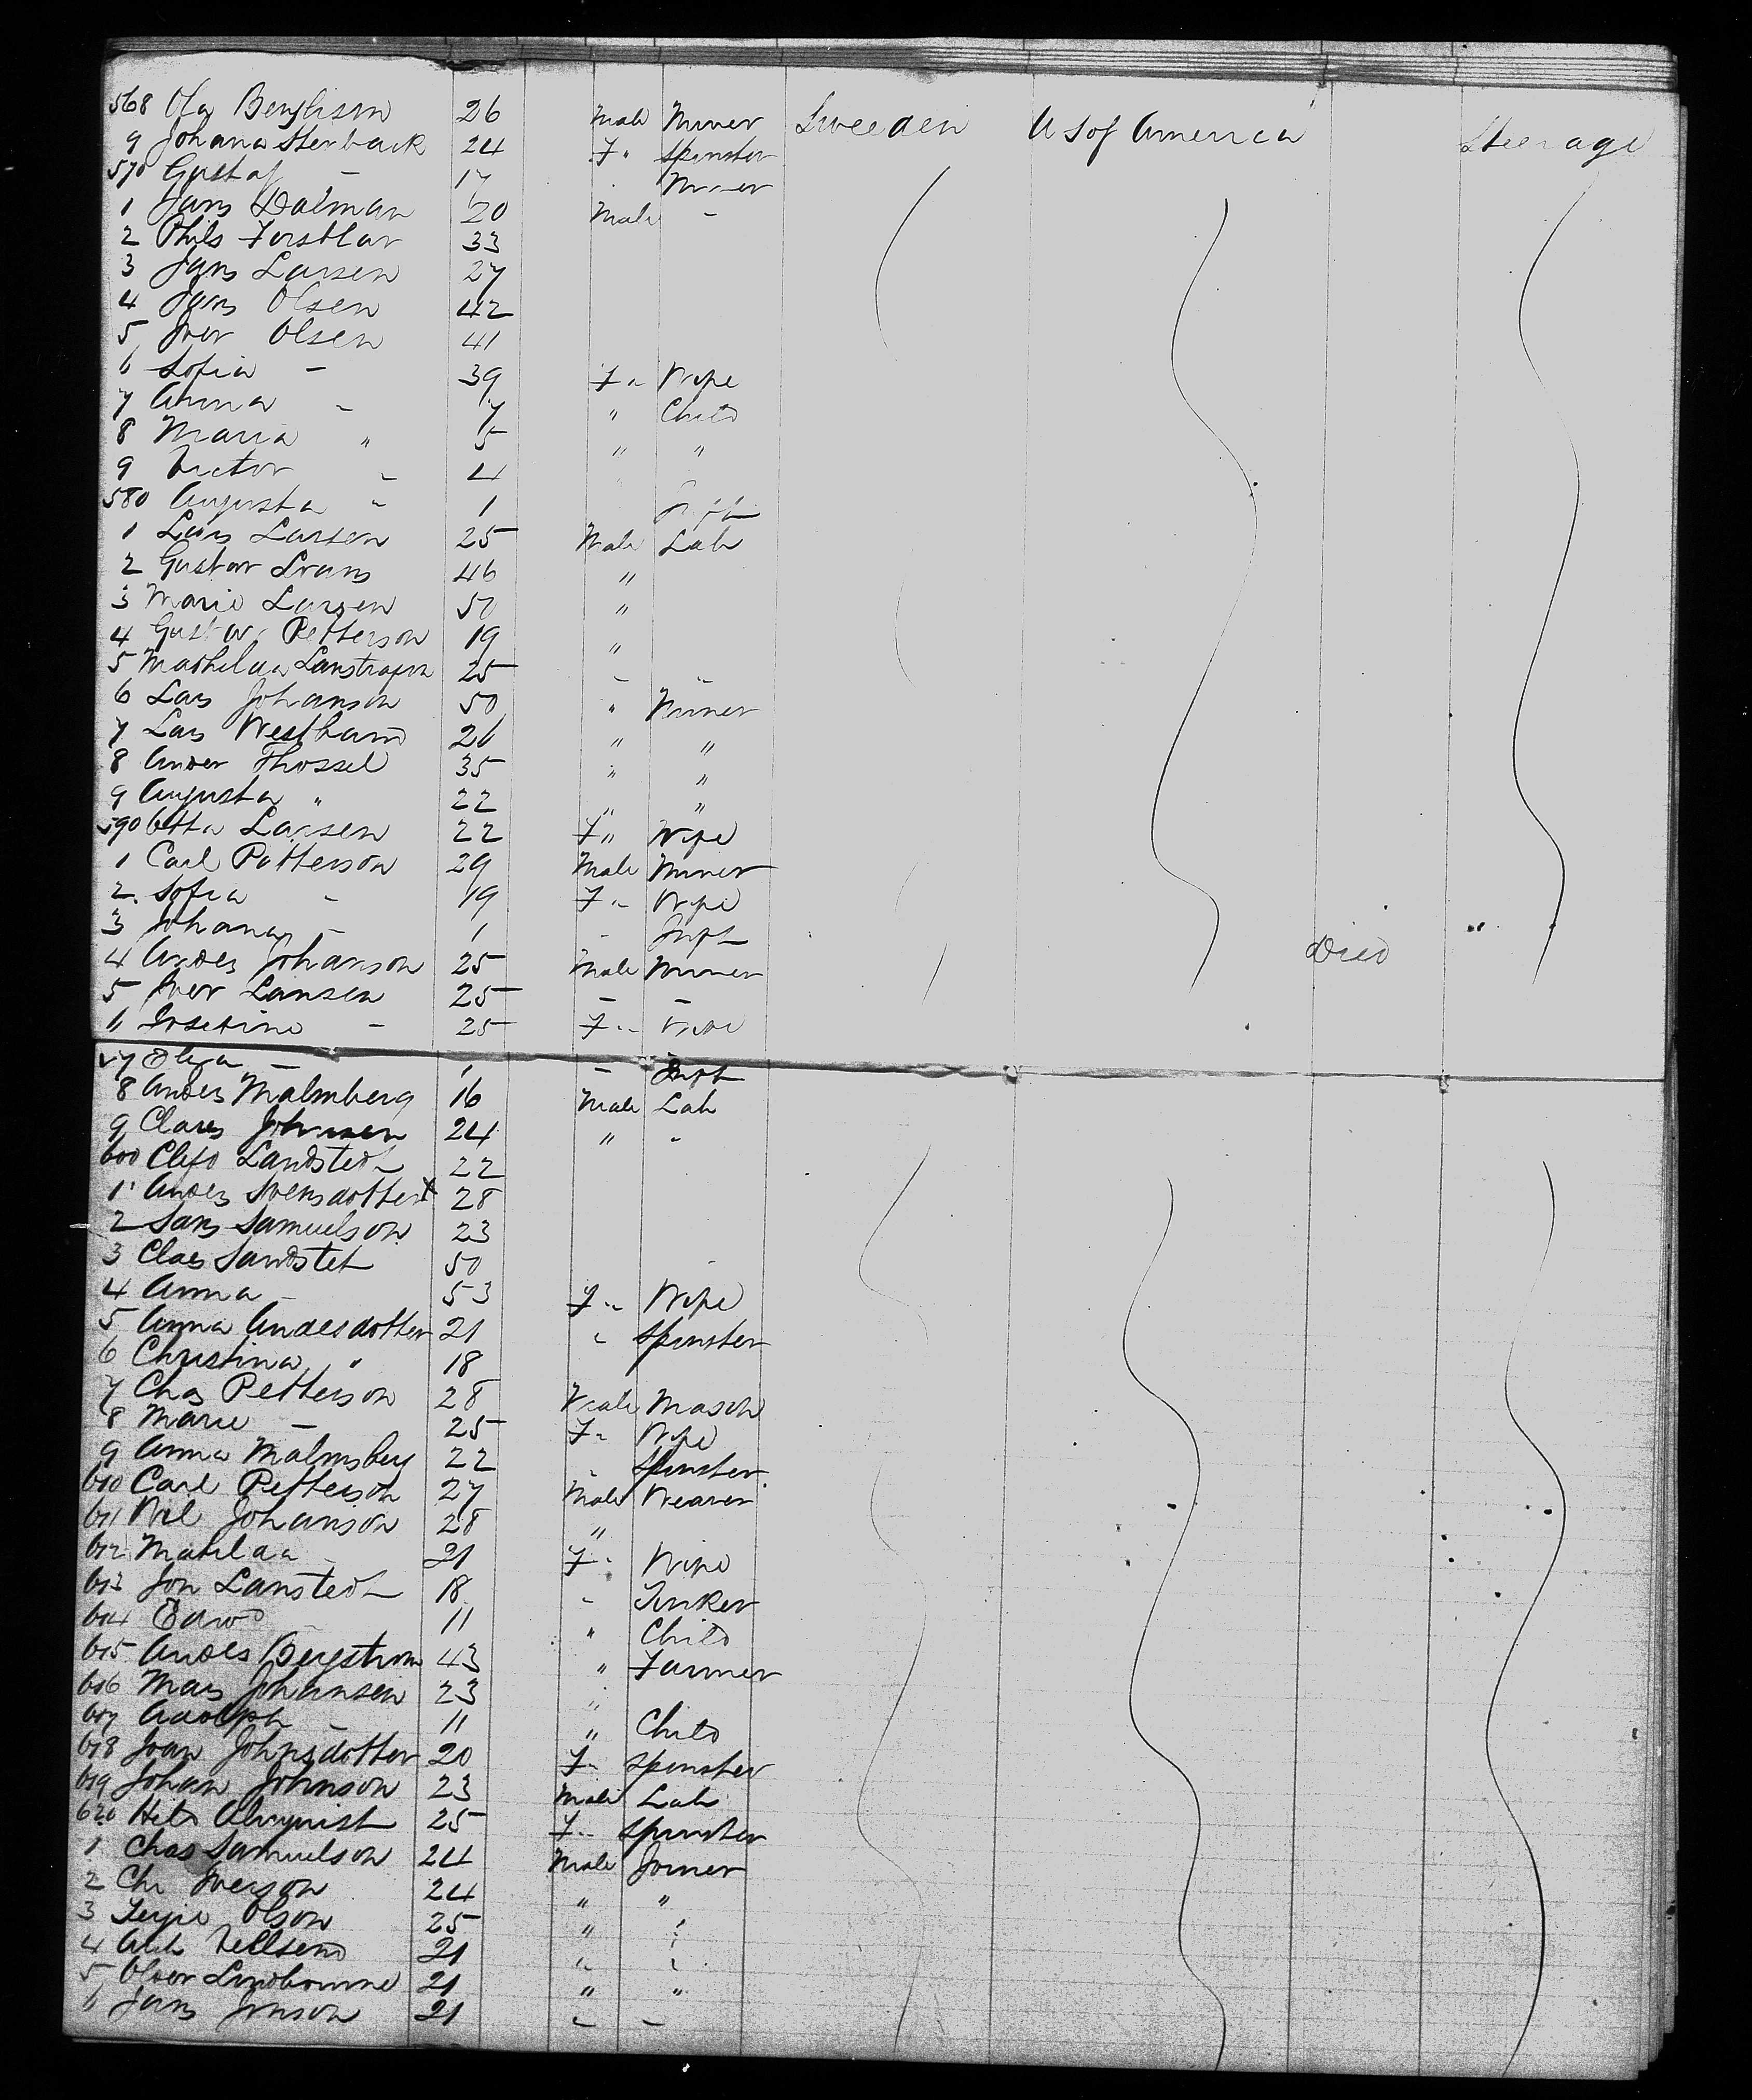 568 Ola Bengtson 26 Male Miner Sweeden U S of America Steerage
9 Johana Sterback 24 F " Spinster
570 Gustaf - 17 Miner
1 Jans Dalman 20 Male -
2 33
3 Jans Larsen 27
4 Jans Olsen 42
5 Iver Olsen 41
6 Sofia - 39 F " Wife
7 Anna - 7 " Child
8 Maria " 5 " "
9 Victor - 4
580 Augusta " 1 Inft
1 Lars Larsen 25 Male Lab
2 Gustav 46 "
3 Marie Larsen 50 "
4 Gustav Petterson 19 "
5 25 - "
6 Lars Johanson 50 " Miner
7 Lars 26 " "
8 Ander Thossel 35 " "
9 Augusta " 22 " "
590 Otta Larsen 22 F " Wife
1 Carl Patterson 29 Male Miner
2 Sofia - 19 F " Wife
3 Johana - 1 - Inft
4 Andes Johanson 25 Male Miner Died "
5 Iver Lansen 25 - -
6 Josefine - 25 F " Wife
97 Olga - 1 - Inft
8 Andes Malmberg 16 Male Lab
9 Claus Johnsen 24 " "
600 Landstedt 22
1 Andes Svensdotter X 28
2 Lars Samuelson 23
3 Claes Sandstet 50
4 Anna - 53 F " Wife
5 Anna Andesdotter 21 " Spinster
6 Christina " 18
7 Chas Petterson 28 Male Mason
8 Marie - 25 F " Wife
9 Anna Malmsberg 22 - Spinster
610 Carl Petterson 27 Male Weaver
611 Wil Johanson 28 "
612 Matilda - 21 F " Wife
613 Jon Lanstedt 18 - Tinker
614 Edwd 11 " Child
615 Andes Bergstrom 43 " Farmer
616 Mars Johansen 23 "
617 Adolph - 11 " Child
618 Joan Johnsdotter 20 F " Spinster
619 Johan Johnson 23 Male Lab
620 Almquist 25 F " Spinster
1 Chas Samuelson 24 Male Joiner
2 Chr Iverson 24 " "
3 Olson 25 " "
4 21 " "
5 21 " "
6 Jans Jonson 21 " -